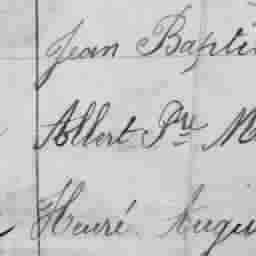 Jean Bapti
Albert Pre M
Henré Augu